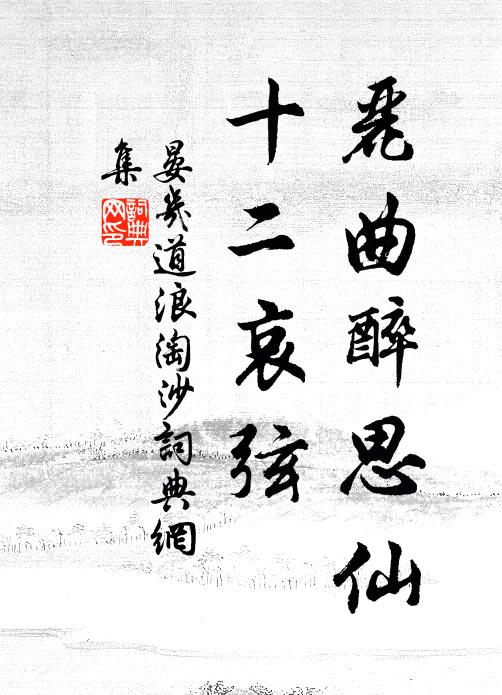 麗曲醉思仙
十二哀弦
晏幾道浪淘沙詞典網
集
詞典网印